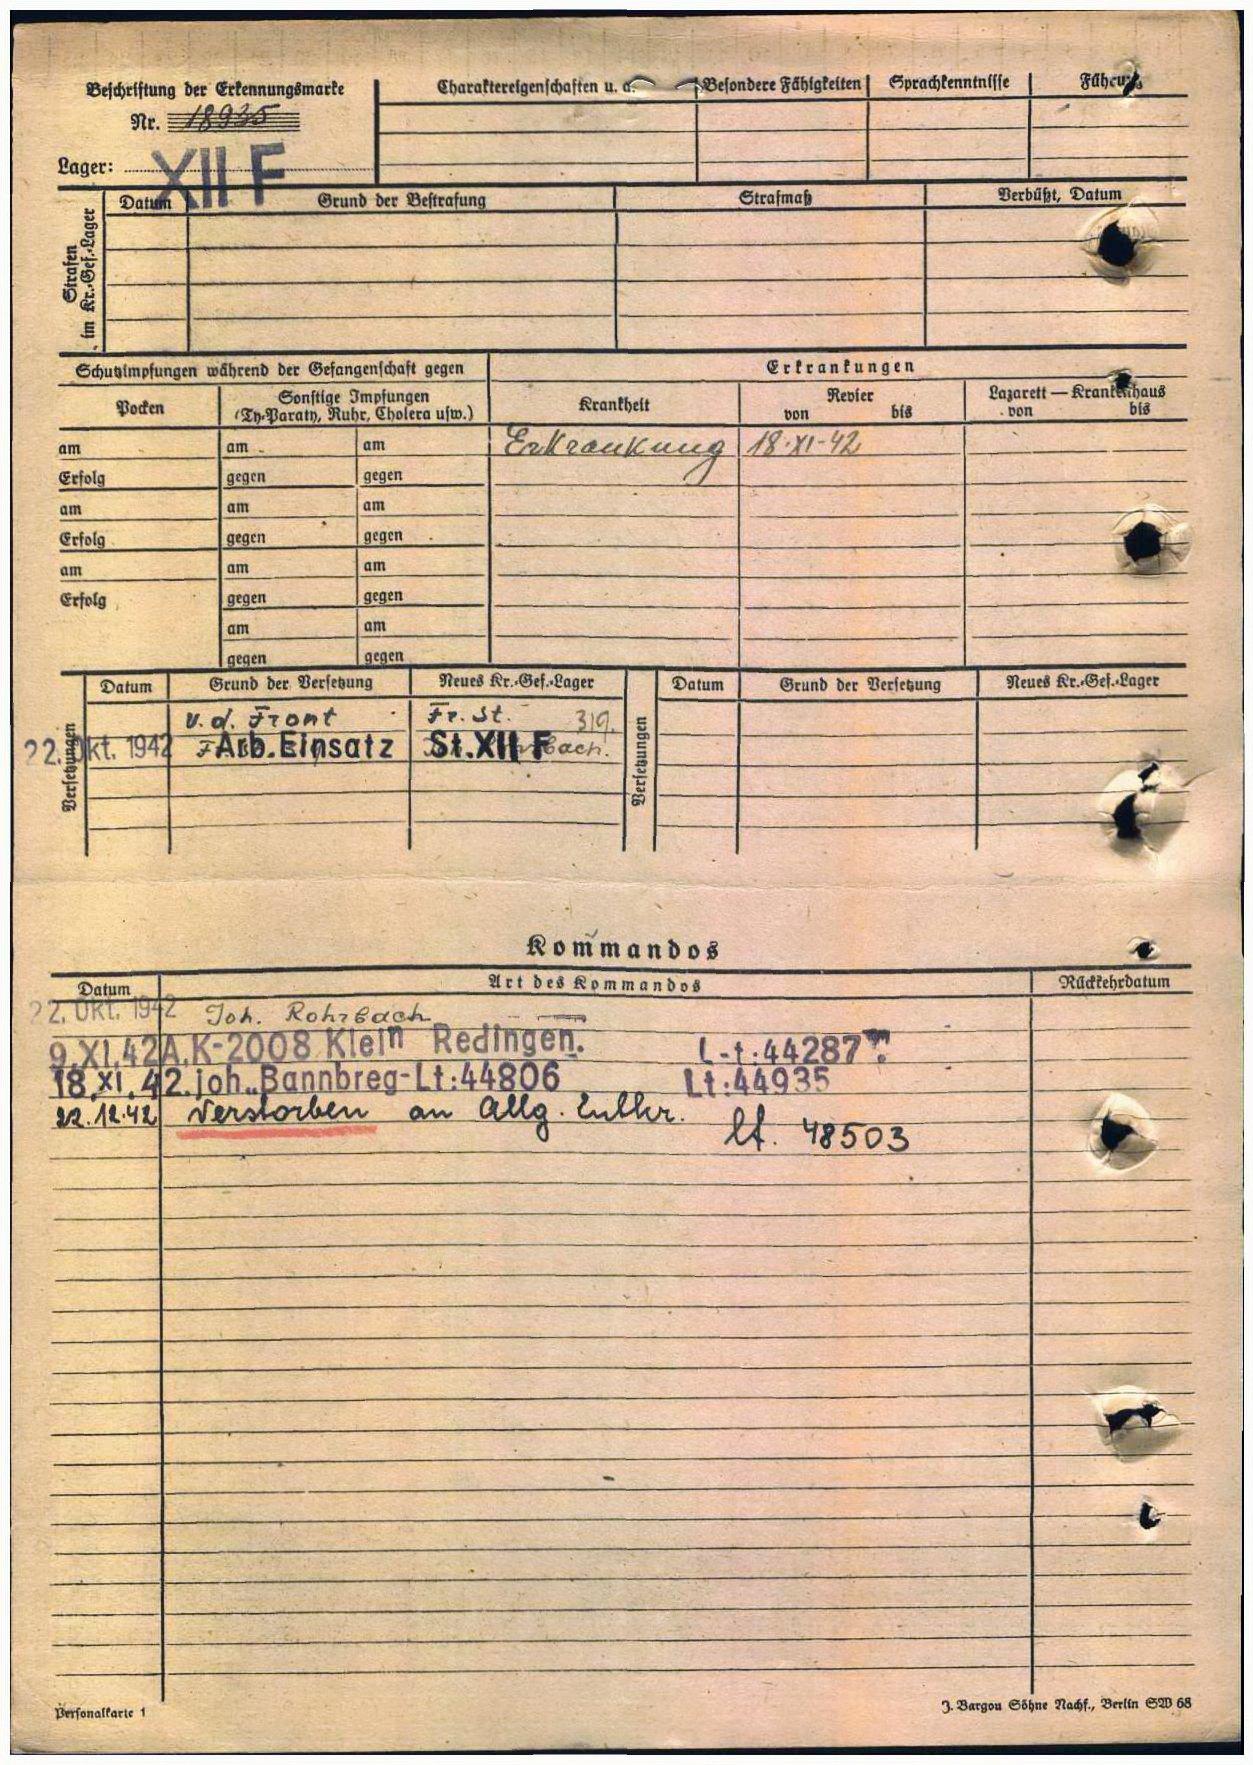 Beschriftung der Erkennungsmarke
Nr. 18935
Lager: XII F
Charaktereigenschaften u. a. Besondere Fähigkeiten Sprachkenntnisse
Strafen im Kr.-Gef.-Lager
Datum Grund der Bestrafung Strafmaß Verbüßt, Datum
Schutzimpfungen während der Gefangenschaft gegen Erkrankungen
Pocken Sonstige Impfungen Krankheit Revier Lazarett — Krankenhaus
(Ty-Paraty, Ruhr, Cholera usw.) von bis von bis
am am am Erkrankung 18·XI-42
Erfolg gegen gegen
am am am
Erfolg gegen gegen
am am am
Erfolg gegen gegen
am am
gegen gegen
Versetzungen Datum Grund der Versetzung Neues Kr.-Gef.-Lager Versetzungen Datum Grund der Versetzung Neues Kr.-Gef.-Lager
v. d. Front Fr. St. 319.
22. Okt. 1942 Arb. Einsatz St. XII F
Kommandos
Datum Art des Kommandos Rückkehrdatum
22. Okt. 1942 Joh. Rohrbach
9. XI. 42 A.K-2008 Klein Redingen. L-t: 44287
18. XI. 42. Joh„Bannbreg-Lt: 44806 Lt: 44935
22.12.42 Verstorben an Allg.
lt. 48503
Personalkarte 1 J. Bargou Söhne Nachf., Berlin SW 68